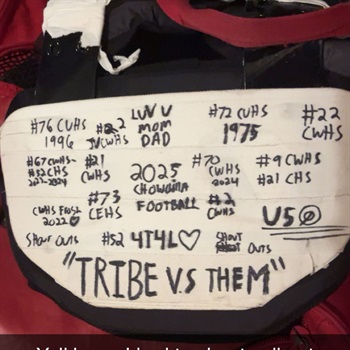 #76 CVHS
1996
#22
JVCWHS
LUV U
MOM
DAD
#72 CUHS
1975
#22
CWHS
#67 CWHS-
#52 CHS
#21
CWHS
2025
FOOTBALL
#70
CWHS
2024
#9 CWHS
#21 CHS
#73
CEHS
#2
CWHS
CWHS
2022♡
SHOUT OUTS
#52 4T4L♡
SHOUT
OUTS
"TRIBE V.S THEM"